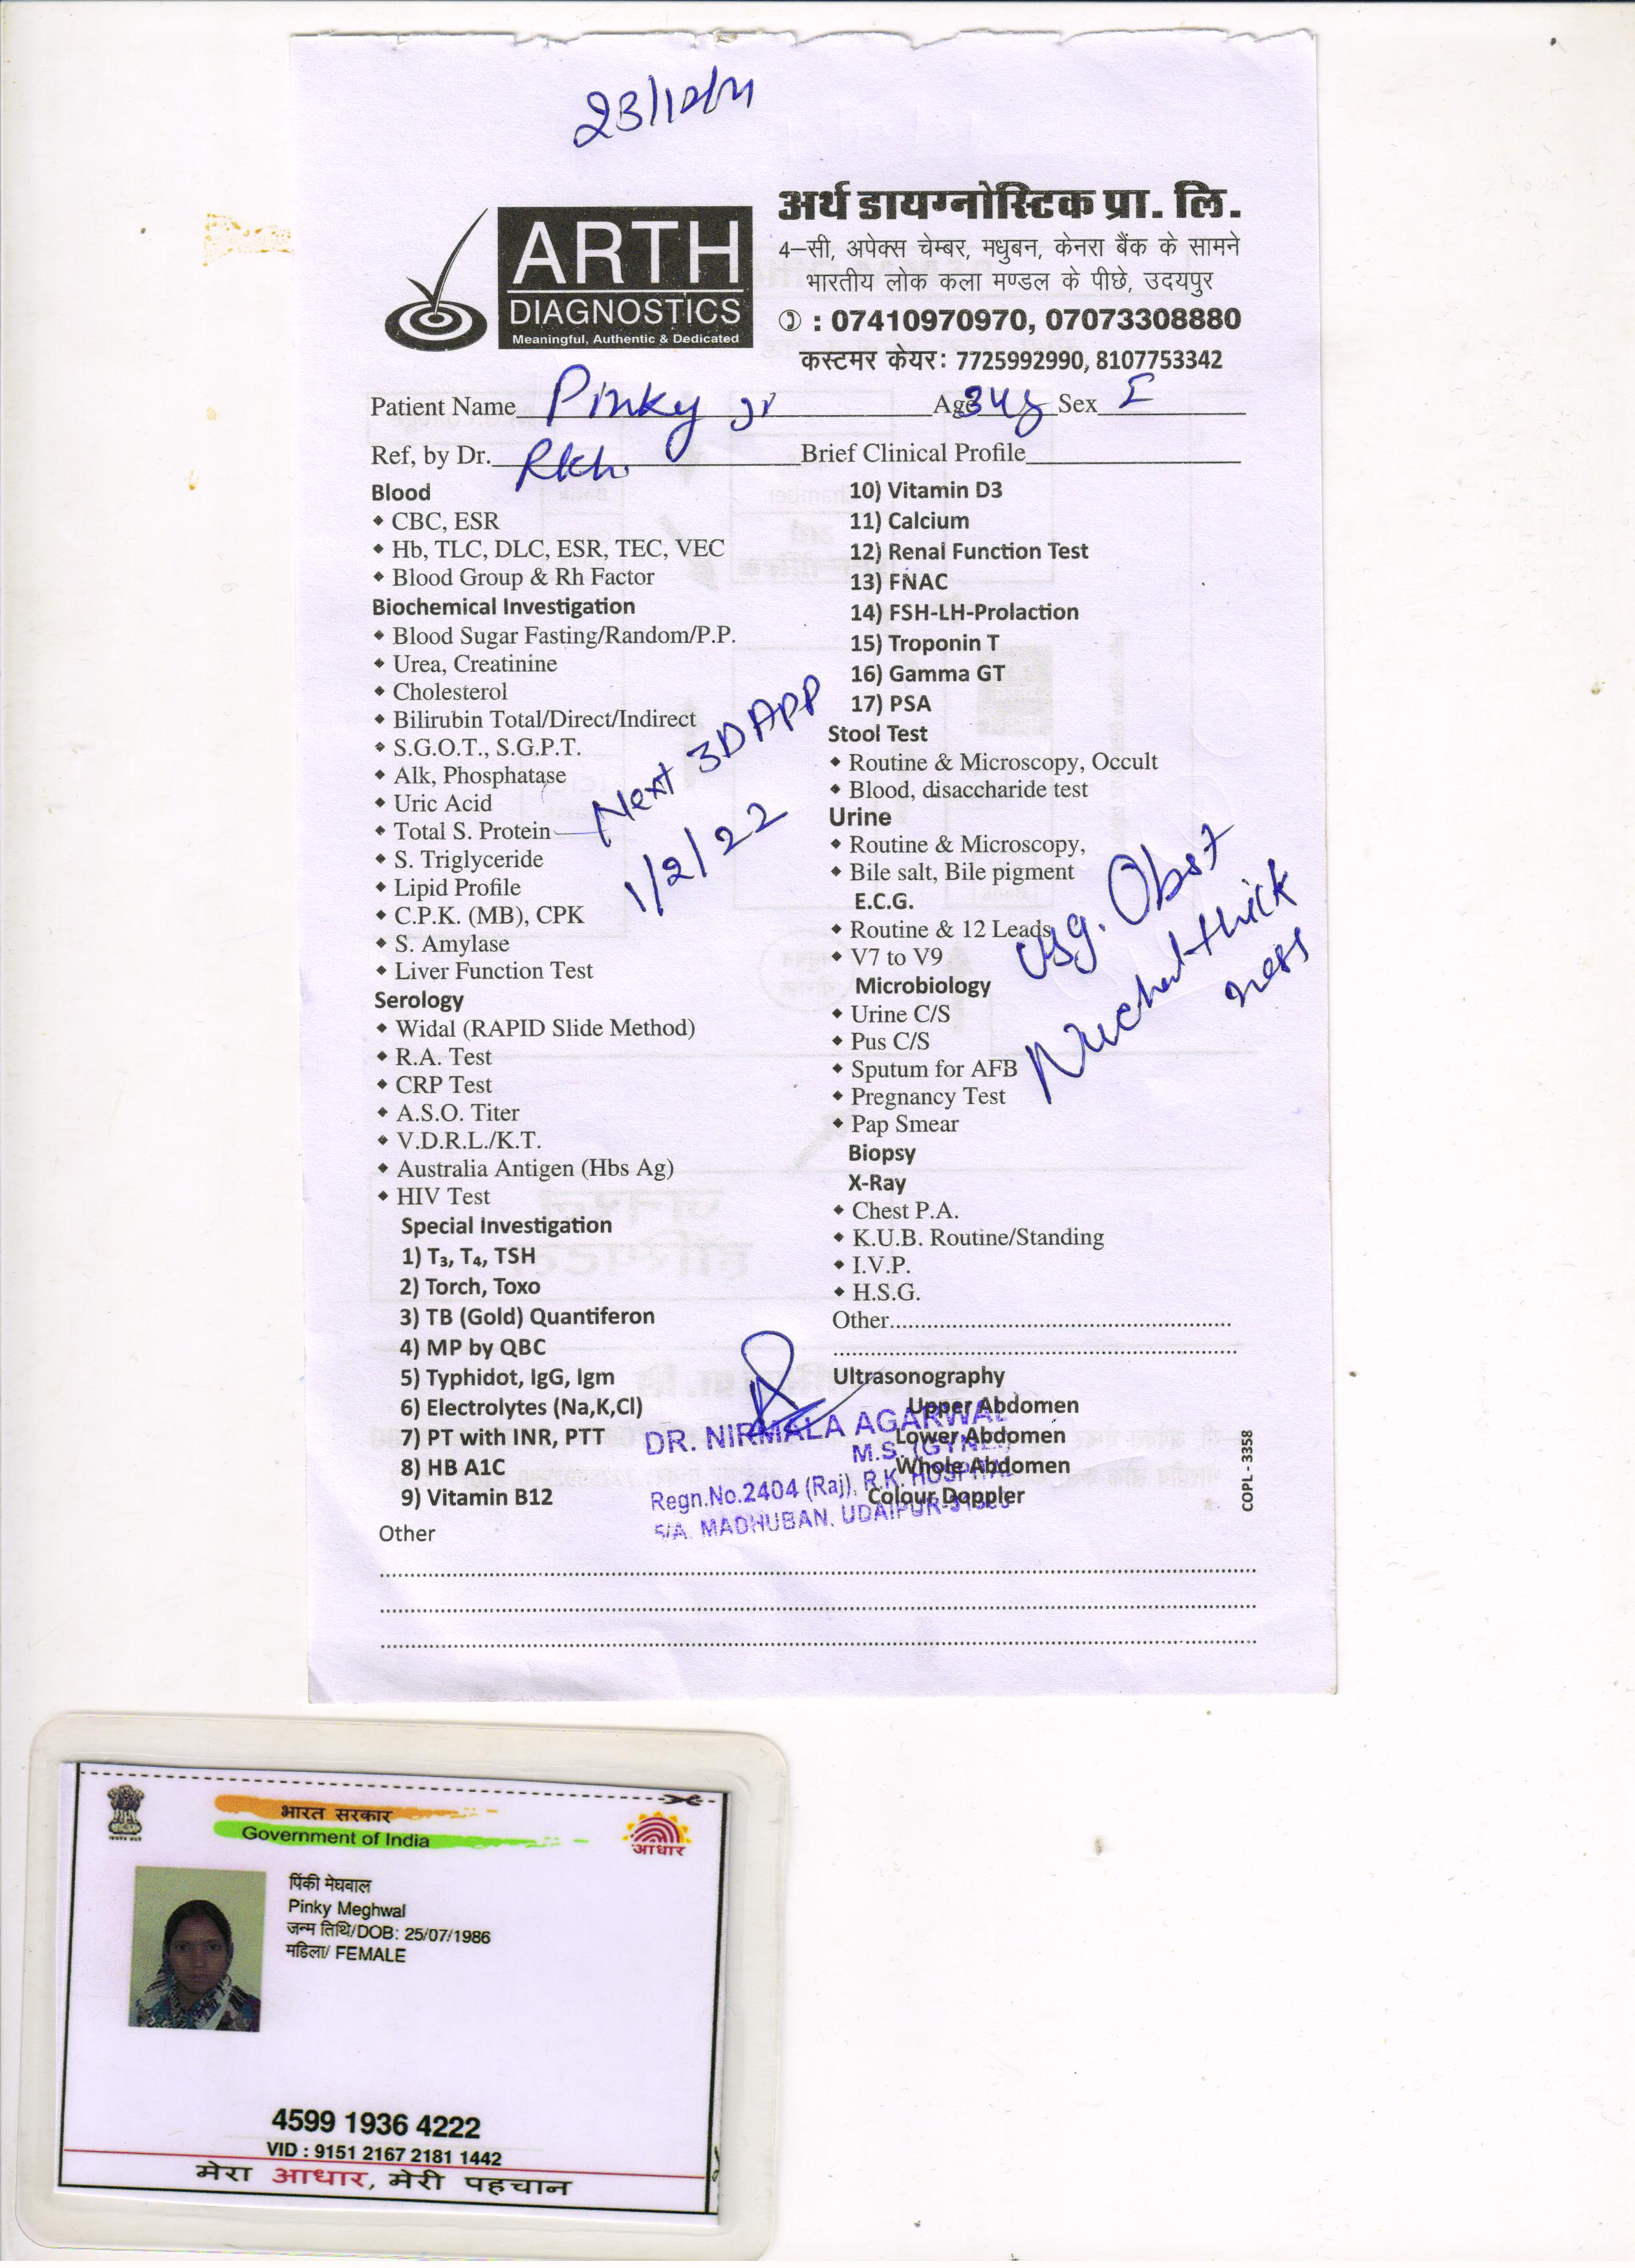 23/12/21
ARTH
DIAGNOSTICS
Meaningful, Authentic & Dedicated
अर्थ डायग्नोस्टिक प्रा. लि.
4–सी, अपेक्स चेम्बर, मधुबन, केनरा बैंक के सामने
भारतीय लोक कला मण्डल के पीछे, उदयपुर
: 07410970970, 07073308880
कस्टमर केयर: 7725992990, 8107753342
Patient Name Pinky ji Age 34y Sex F
Ref, by Dr. Rkh. Brief Clinical Profile
Blood
CBC, ESR
Hb, TLC, DLC, ESR, TEC, VEC
Blood Group & Rh Factor
Biochemical Investigation
Blood Sugar Fasting/Random/P.P.
Urea, Creatinine
Cholesterol
Bilirubin Total/Direct/Indirect
S.G.O.T., S.G.P.T.
Alk, Phosphatase
Uric Acid
Total S. Protein
S. Triglyceride
Lipid Profile
C.P.K. (MB), CPK
S. Amylase
Liver Function Test
Next 3D APP
1/2/22
Serology
Widal (RAPID Slide Method)
R.A. Test
CRP Test
A.S.O. Titer
V.D.R.L./K.T.
Australia Antigen (Hbs Ag)
HIV Test
Special Investigation
1) T₃, T₄, TSH
2) Torch, Toxo
3) TB (Gold) Quantiferon
4) MP by QBC
5) Typhidot, IgG, Igm
6) Electrolytes (Na,K,Cl)
7) PT with INR, PTT
8) HB A1C
9) Vitamin B12
10) Vitamin D3
11) Calcium
12) Renal Function Test
13) FNAC
14) FSH-LH-Prolaction
15) Troponin T
16) Gamma GT
17) PSA
Stool Test
Routine & Microscopy, Occult
Blood, disaccharide test
Urine
Routine & Microscopy,
Bile salt, Bile pigment
E.C.G.
Routine & 12 Leads
V7 to V9
Usg. Obst
Nuchal thick
ness
Microbiology
Urine C/S
Pus C/S
Sputum for AFB
Pregnancy Test
Pap Smear
Biopsy
X-Ray
Chest P.A.
K.U.B. Routine/Standing
I.V.P.
H.S.G.
Other
Ultrasonography
Upper Abdomen
Lower Abdomen
Whole Abdomen
Colour Doppler
DR. NIRMALA AGARWAL
M.S. (GYNE.)
Regn.No.2404 (Raj), R.K. HOSPITAL
5/A. MADHUBAN. UDAIPUR
COPL - 3358
Other
भारत सरकार
Government of India
आधार
पिंकी मेघवाल
Pinky Meghwal
जन्म तिथि/DOB: 25/07/1986
महिला/ FEMALE
4599 1936 4222
VID : 9151 2167 2181 1442
मेरा आधार, मेरी पहचान